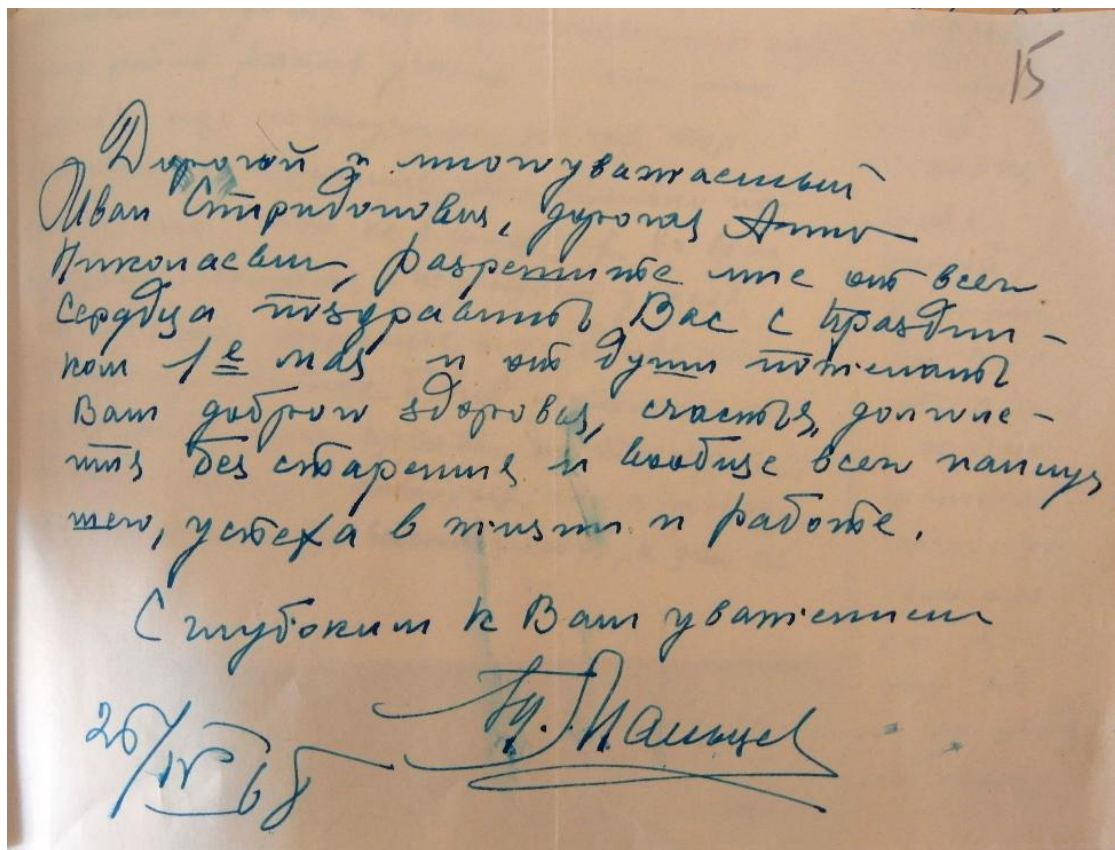 15
Дорогой и многоуважаемый
Иван Спиридонович, дорогая Анна
Николаевна, разрешите мне от всего
сердца поздравить Вас с праздни-
ком 1е мая и от души пожелать
Вам доброго здоровья, счастья, долголе-
тия без старения и вообще всего наилуч
шего, успеха в жизни и работе.
С глубоким к Вам уважением
Мальцев